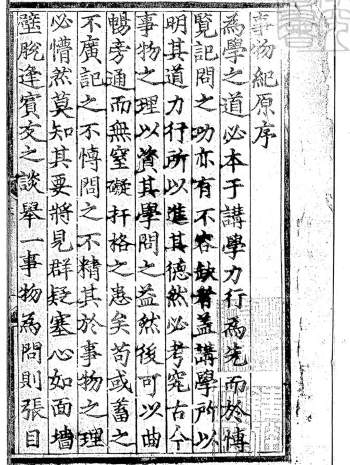 事物紀原序
為學之道必本于講學力行為先而於博
覽記問之功亦有不容缺者蓋講學所以
明其道力行所以進其德然必考究古今
事物之理以資其學問之益然後可以曲
暢旁通而無窒礙扞格之患矣苟或蓄之
不廣記之不博問之不精其於事物之理
必懵然莫知其要將見群疑塞心如面墻
壁脫逢賓友之談舉一事物為問則張目